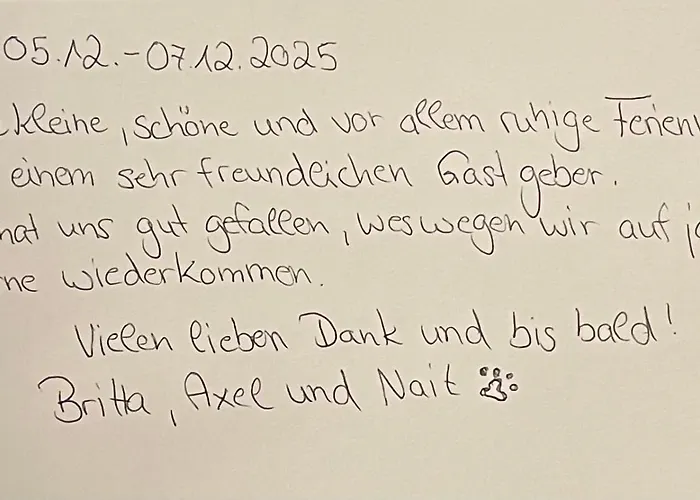 05.12.-07.12.2025
kleine, schöne und vor allem ruhige Ferienw
einem sehr freundlichen Gastgeber.
hat uns gut gefallen, weswegen wir auf
ne wiederkommen.
Vielen lieben Dank und bis bald!
Britta, Axel und Nait